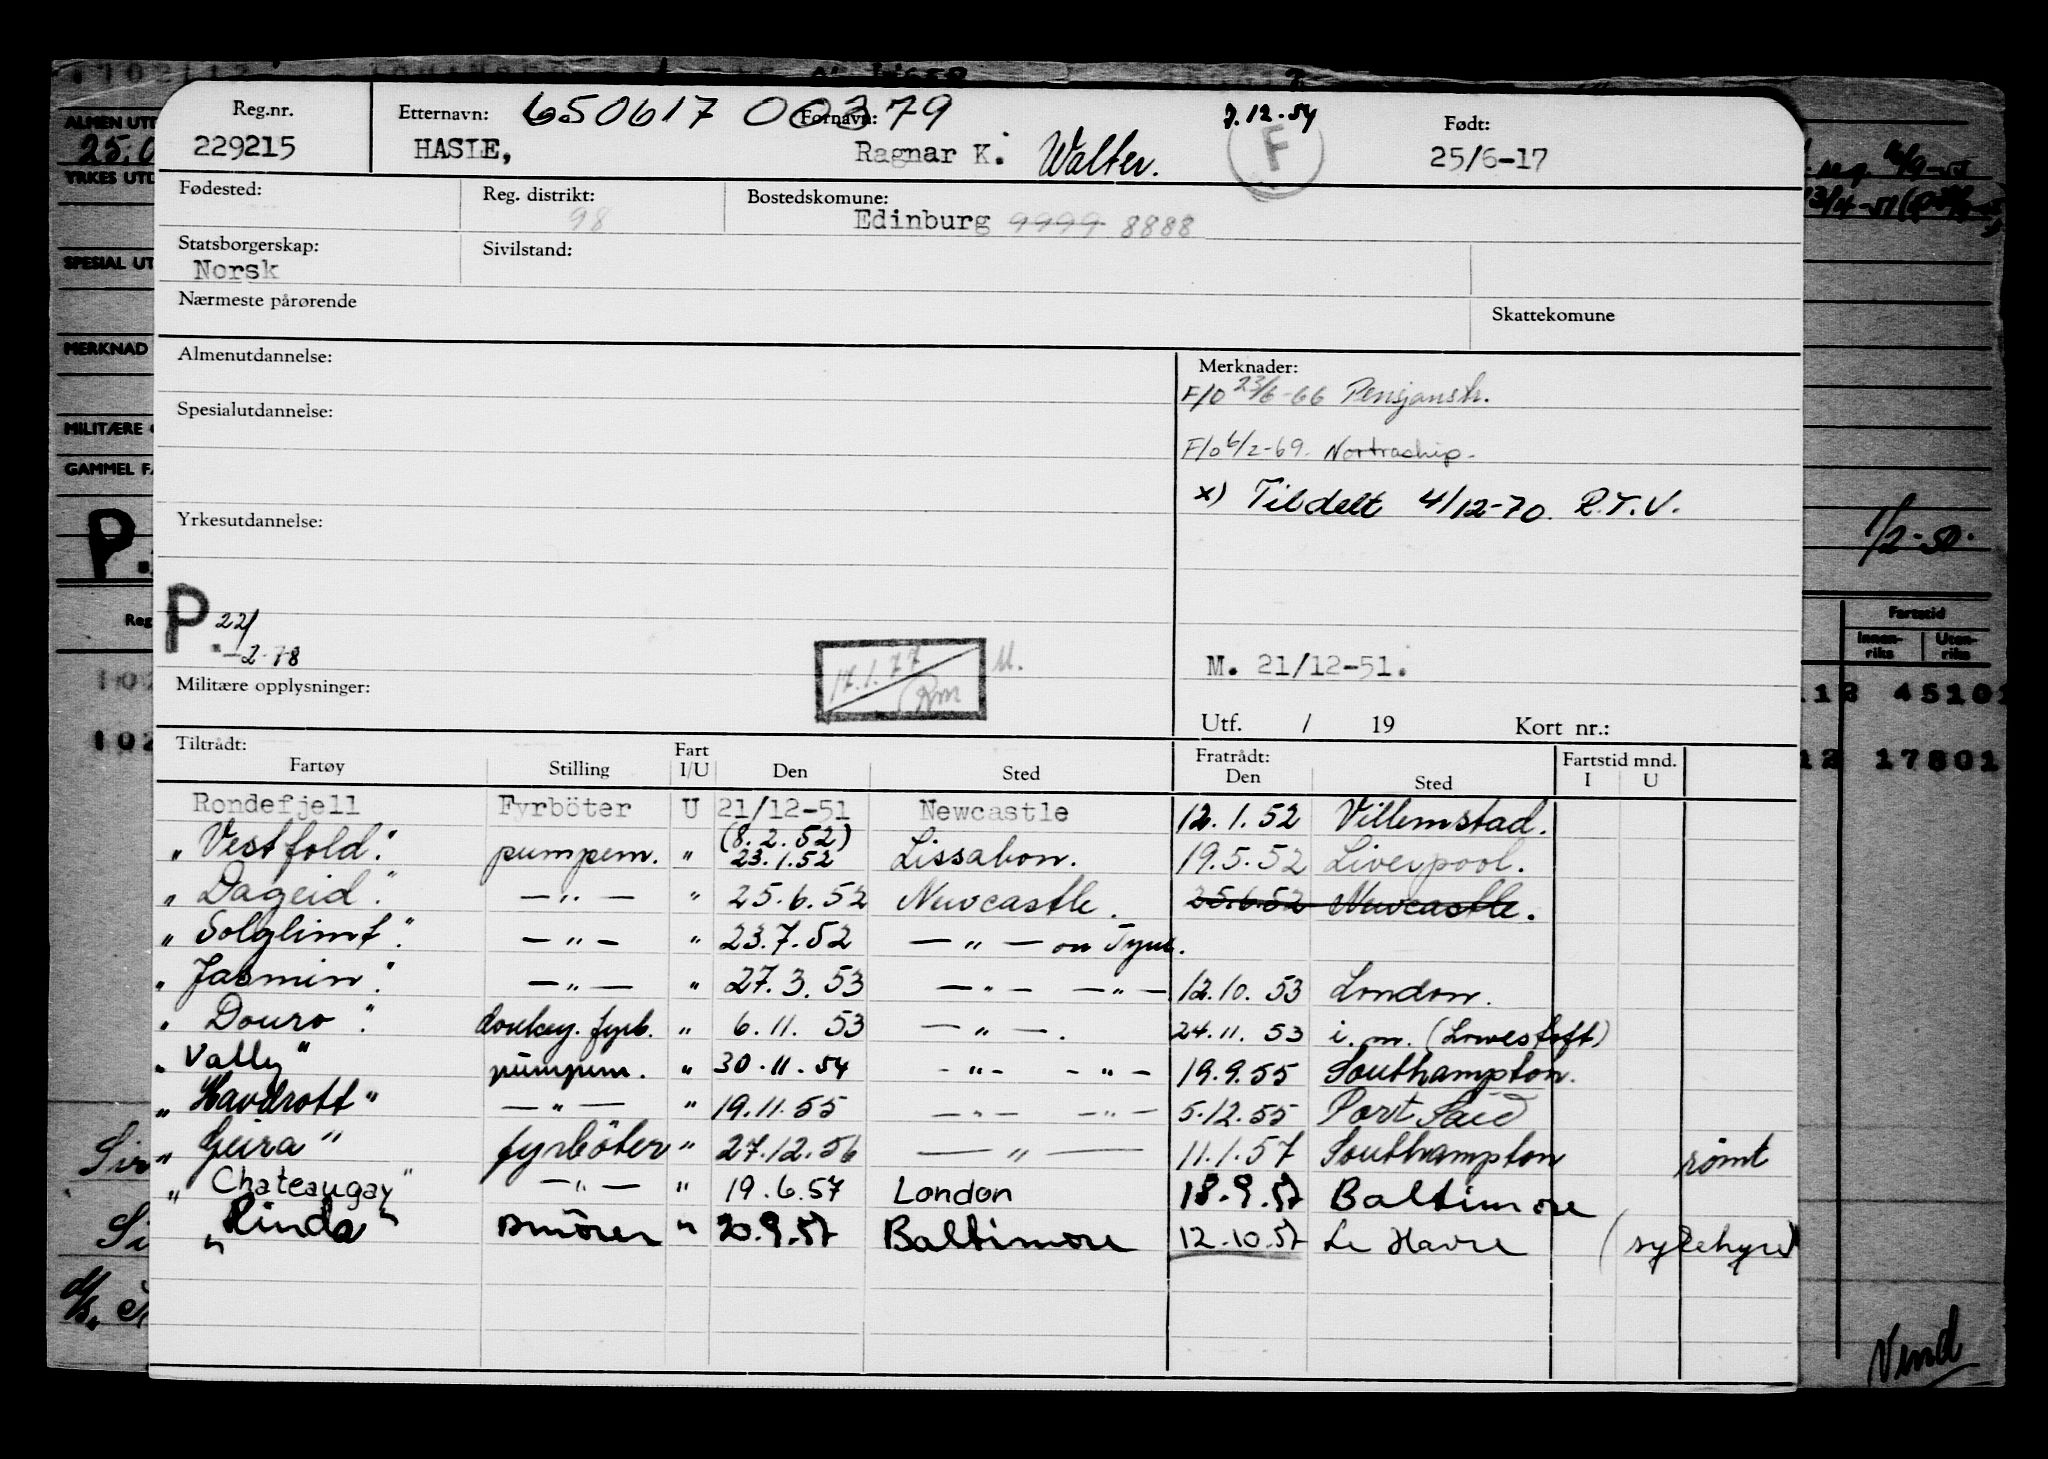 Reg.nr. Etternavn: 650617 00379 Fornavn: 7.12.54 F Født:
229215 HASLE, Ragnar K. Walter. 25/6-17
Fødested: Reg. distrikt: 98 Bostedskomune: Edinburg 9999 8888
Statsborgerskap: Norsk Sivilstand:
Nærmeste pårørende Skattekomune
Almenutdannelse: Merknader:
F/O 23/6-66 Pensjonstr.
Spesialutdannelse:
F/O 6/2-69. Nortraship.
x) Tildelt 4/12-70. R.T.V.
Yrkesutdannelse:
P. 22/
-2-78
17.1.77 M.
M. 21/12-51.
Militære opplysninger:
Utf. / 19 Kort nr.:
Tiltrådt: Fart Fratrådt: Fartstid mnd.
Fartøy Stilling I/U Den Sted Den Sted I U
Rondefjell Fyrböter U 21/12-51 Newcastle 12.1.52 Villemstad.
(8.2.52)
"Vestfold". pumpem. " 23.1.52 Lissabon. 19.5.52 Liverpool.
"Dageid". — " — " 25.6.52 Newcastle. 25.6.52 Newcastle.
"Solglimt". — " — " 23.7.52 — " — on Tyne.
"Jasmin". — " — " 27.3.53 — " — — " — 12.10.53 London.
"Douro". donkey. fyrb. " 6.11.53 — " — . 24.11.53 i.m. (Lowestoft)
"Vally" pumpem. " 30.11.54 — " — — " — 19.9.55 Southampton.
"Havdrott" — " — " 19.11.55 — " — — " — 5.12.55 Port Said
"Geira" fyrböter " 27.12.56 — " — 11.1.57 Southampton rømt
"Chateaugay" — " — " 19.6.57 London 18.9.57 Baltimore
"Rinda" smörer " 20.9.57 Baltimore 12.10.57 Le Havre (sykehyre)
ALMEN UTD
YRKES UTD
SPESIAL UT
MERKNAD
MILITÆRE
GAMMEL FA
P.
Reg
1/2-50.
Fartstid
Innenriks Utenriks
45101
17801
Vend